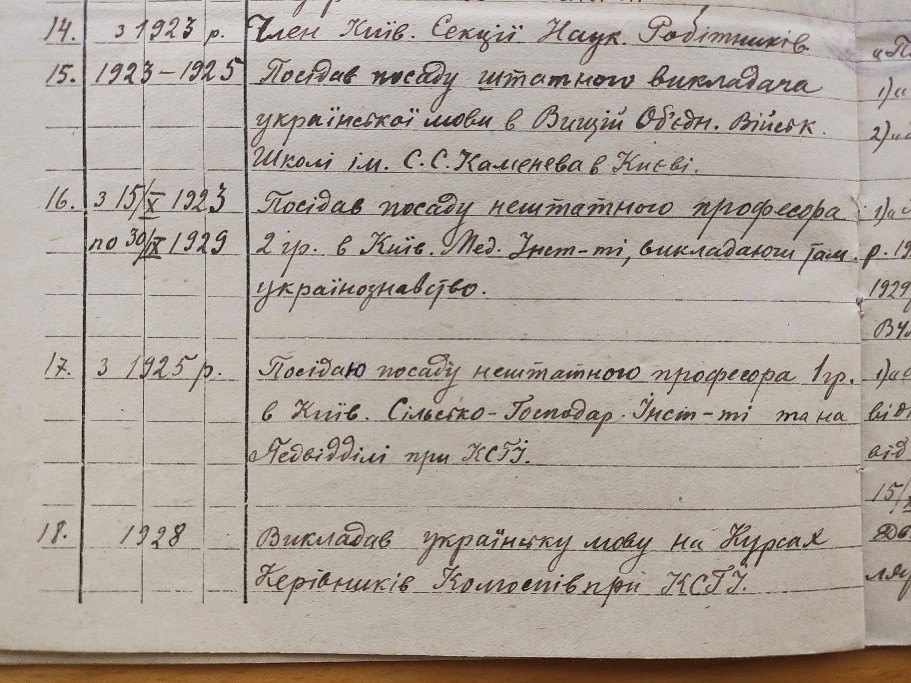 14. з 1923 р. Член Київ. Секції Наук. Робітників
15. 1923–1925 Посідав посаду штатного викладача
української мови в Вищій Об'єдн. Військ.
Школі ім. С. С. Каменева в Києві.
16. з 15/X 1923 Посідав посаду нештатного професора
по 30/IX 1929 2 гр. в Київ. Мед. Інст-ті, викладаючи там
українознавство.
17. з 1925 р. Посідаю посаду нештатного професора 1 гр.
в Київ. Сільсько-Господар. Інст-ті та на
Педвідділі при КСГІ.
18. 1928 Викладав українську мову на Курсах
Керівників Комгоспів при КСГІ.
«П
1) «
2) «
1) «
р. 19
1929
1) «
від
15/